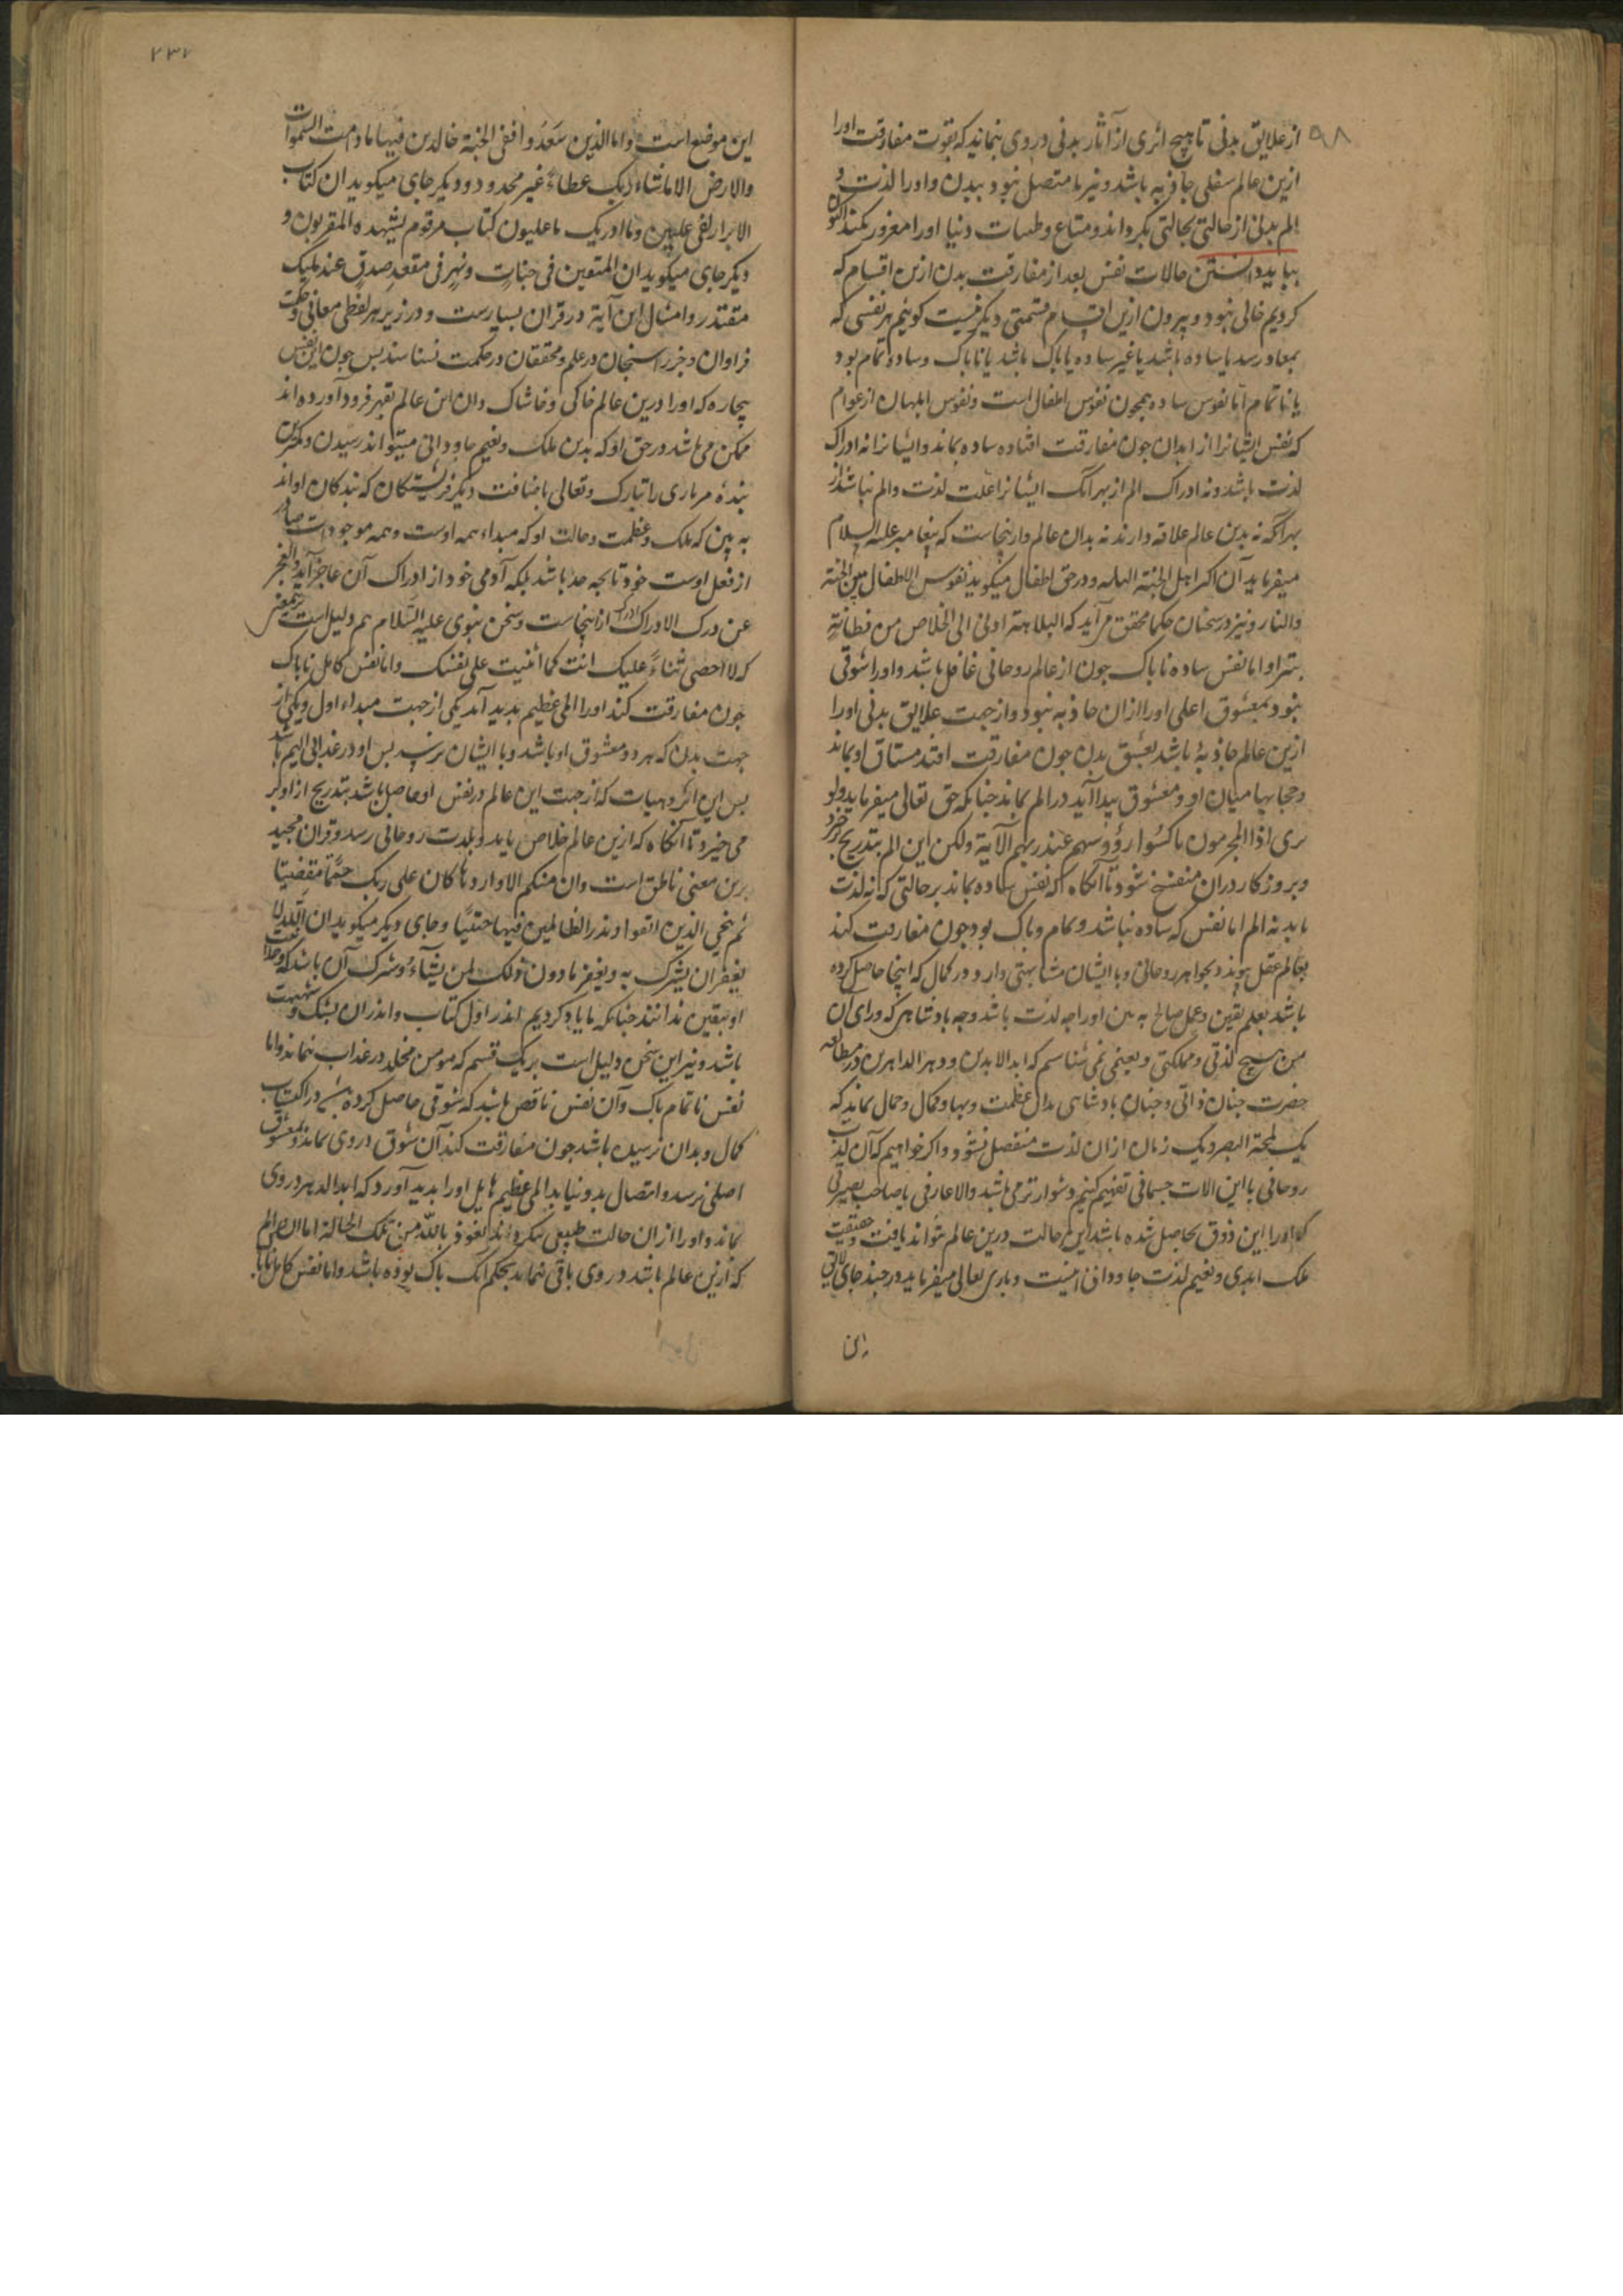 ۹۸
از علایق بدنی تا هیچ اثری از آثار بدنی در وی بنماند که بقوت مفارقت اورا
ازین عالم سفلی جاذبه باشد و نیز با متصل نبود ببدن و اورا لذت و
الم بدنی از حالتی بحالتی بگرداند و متاع و طیبات دنیا اورا مغرور نکند اکنون
بباید دانستن حالات نفس بعد از مفارقت بدن ازین اقسام که
کردیم خالی نبود و بیرون ازین اقسام قسمتی دیگر نیست کوئیم هر نفسی که
بمعاد رسد یا ساده باشد یا غیر ساده یا پاک باشد یا ناپاک و ساده تمام بود
یا ناتمام اما نفوس ساده همچون نفوس اطفال است و نفوس ابلهان از عوام
که نفس ایشانرا از ابدان چون مفارقت افتاده ساده بماند و ایشانرا نه ادراک
لذت باشد و نه ادراک الم از بهر آنک ایشانرا علت لذت و الم نباشد از
بهر آنکه نه بدین عالم علاقه دارند نه بدان عالم و ازینجاست که پیغامبر علیه السلام
میفرماید آن اکثر اهل الجنة البله و در حق اطفال میکوید نفوس الاطفال بین الجنة
والنار و نیز در سخنان حکما محقق میرآید که البلاهة ادنی الی الخلاص من فطانة
بترا و اما نفس ساده ناپاک چون از عالم روحانی غافل باشد و اورا شوقی
نبود بمعشوق اعلی اورا ازان جاذبه نبود و از جهت علایق بدنی اورا
ازین عالم جاذبهٔ باشد بعشق بدن چون مفارقت افتد مشتاق او بماند
و حجابها میان او و معشوق پیدا آید در الم بماند چنانکه حق تعالی میفرماید ولو
تری اذا المجرمون ناکسوا رؤوسهم عند ربهم الآیة ولکن این الم بتدریج
و بروزکار دران منفسخ شود تا آنکاه که نفس ساده بماند بر حالتی که نه لذت
یابد نه الم اما نفس که ساده نباشد و تمام و پاک بود چون مفارقت کند
بعالم عقل پیوندد بجواهر روحانی و با ایشان مشابهتی دارد در کمال که اینجا حاصل کرده
باشد بعلم یقین و عمل صالح به بین اورا چه لذت باشد و چه پادشاهی که ورای آن
من هیچ لذتی و مملکتی و نعیمی نمی شناسم که ابد الابدین و دهر الداهرین در مطالعه
حضرت چنان ذاتی و چنان پادشاهی بدان عظمت و بها و کمال و جمال بماند که
یک لمحة البصر و یک زمان ازان لذت منفصل نشود و اکر خواهیم که آن لذت
روحانی با این الات جسمانی تفهیم کنیم دشوارتر می باشد و الا عارفی یا صاحب بصیرتی
که اورا این ذوق حاصل شده باشد این حالت درین عالم تواند یافت و حقیقت
ملک ابدی و نعیم لذت جاودانی اینست و باری تعالی میفرماید در چند جای
این
۲۳۷
این موضع است و اما الذین سعدوا ففی الجنة خالدین فیها ما دامت السموات
والارض الا ماشاء ربک عطاءً غیر مجذوذ و دیکر جای میکوید ان کتاب
الابرار لفی علیین وما ادریک ما علیون کتاب مرقوم یشهده المقربون و
دیکر جای میکوید ان المتقین فی جنات و نهر فی مقعد صدق عند ملیک
مقتدر و امثال این آیة در قران بسیارست و در زیر هر لفظی معانی و حکمت
فراوان و جز راسخان در علم و محققان در حکمت نشناسند پس چون این نفس
بیچاره که اورا درین عالم خاکی و خاشاک دان این عالم بقهر فرود آورده اند
ممکن می باشد در حق او که بدین ملک و نعیم جاودانی میتواند رسیدن و کمترین
بندهٔ مر باری را تبارک و تعالی باضافت دیکر فریشتکان که بندکان او اند
به بین که ملک و عظمت و جالت او که مبداء همه اوست و همه موجودات صادر
از فعل اوست خود تا بچه حد باشد بلکه آدمی خود از ادراک آن عاجز آید والعجز
عن درک الادراک ادراک ازینجاست و سخن نبوی علیه السلام هم دلیل است برین معنی
که لا احصی ثناءً علیک انت کما اثنیت علی نفسک و اما نفس کامل ناپاک
چون مفارقت کند اورا المی عظیم پدید آمد یکی از جهت مبداء اول و یکی از
جهت بدن که هر دو معشوق او باشد و با ایشان نرسد پس او در عذابی الیم باشد
پس این اثر و هیات که از جهت این عالم در نفس او حاصل باشد بتدریج از او بر
می خیزد تا آنکاه که ازین عالم خلاص یابد و بلذت روحانی رسد و قران مجید
برین معنی ناطق است وان منکم الا واردها کان علی ربک حتمًا مقضیًا
ثم ننجی الذین اتقوا و نذر الظالمین فیها جثیًا و جای دیکر میکوید ان الله لا
یغفر ان یشرک به و یغفر ما دون ذلک لمن یشاء و شرک آن باشد که وحدانیت
او بیقین ندانند چنانکه ما یاد کردیم اندر اول کتاب و اندران بشک و شبهت
باشد و نیز این سخن دلیل است بر یک قسم که مومن مخلد در عذاب نماند و اما
نفس ناتمام پاک و آن نفس ناقص باشد که شوقی حاصل کرده باشد در اکتساب
کمال و بدان نرسیده باشد چون مفارقت کند آن شوق در وی بماند و بمعشوق
اصلی نرسد و اتصال بدو نیابد المی عظیم هایل اورا پدید آورد که ابد الدهر در وی
بماند و اورا ازان حالت طبیعی بگرداند نعوذ بالله من تلک الحالة اما آن الم
که ازین عالم باشد در وی باقی نماند بحکم آنک پاک بوده باشد و اما نفس کامل ناپاک